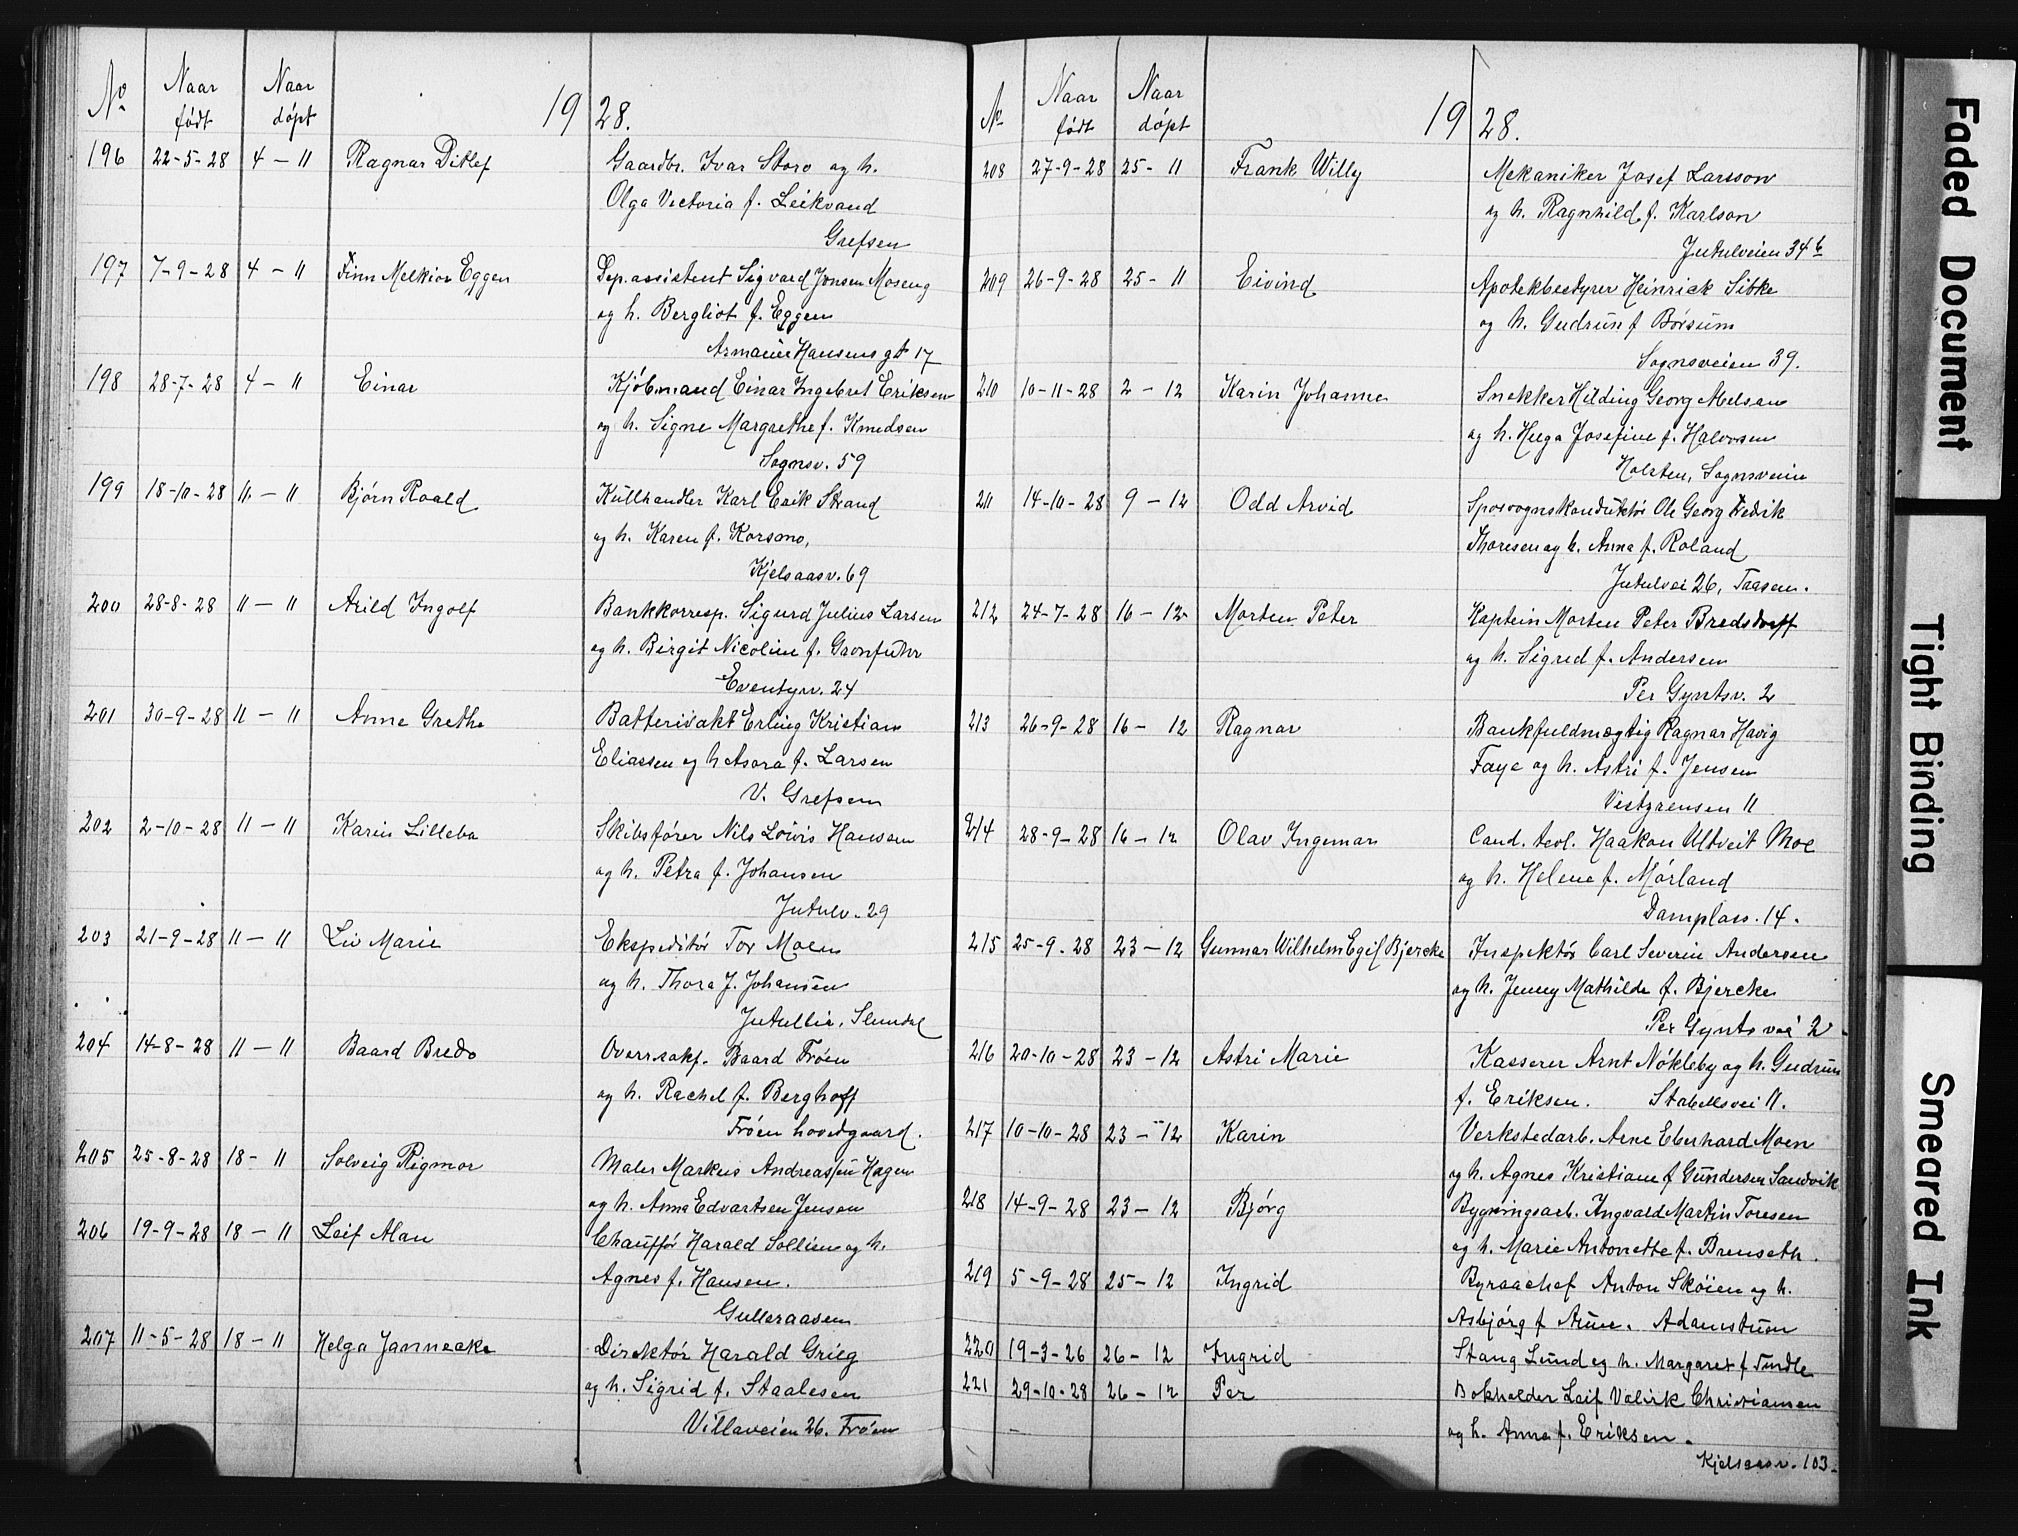 No Naar født Naar døpt 1928.
196 22-5-28 4-11 Ragnar Ditlef Gaardbr. Ivar Storo og h.
Olga Victoria f. Leikvand
Grefsen
197 7-9-28 4-11 Finn Melkior Eggen Dep.assistent Sigvard Jonsen Moseng
og h. Bergliot f. Eggen
Armauer Hansens gt 17
198 28-7-28 4-11 Einar Kjøbmand Einar Ingebret Eriksen
og h. Signe Margrethe f. Knudsen
Sognsv. 59
199 18-10-28 11-11 Bjørn Roald Kullhandler Karl Erik Strand
og h. Karen f. Korsmo,
Kjelsaasv. 69
200 28-8-28 11-11 Arild Ingolf Bankkorresp. Sigurd Julius Larsen
og h. Birgit Nicoline f. Gronfuhr
Eventyrv. 24
201 30-9-28 11-11 Anne Grethe Batterivakt Erling Kristian
Eliassen og h Asora f. Larsen
V. Grefsen
202 2-10-28 11-11 Karin Lilleba Skibsfører Nils Lovis Hansen
og h. Petra f. Johansen
Jutulv. 29
203 21-9-28 11-11 Liv Marie Ekspeditør Tor Moen
og h. Thora f. Johansen
Jutullia,
204 14-8-28 11-11 Baard Bredo Overrsakf. Baard Frøen
og h. Rachel f. Berghoff
Frøen hovedgaard.
205 25-8-28 18-11 Solveig Rigmor Maler Markus Andreassen Hagen
og h. Anna Edvartsen Jensen
206 19-9-28 18-11 Leif Alan Chauffør Harald Sollien og h.
Agnes f. Hansen.
Gulleraasen
207 11-5-28 18-11 Helga Jannecke Direktør Harald Grieg
og h. Sigrid f. Staalesen
Villaveien 26. Frøen
No Naar født Naar døpt 1928.
208 27-9-28 25-11 Frank Willy Mekaniker Josef Larsson
og h. Ragnhild f. Karlson
Jutulveien 34b
209 26-9-28 25-11 Eivind Apotekbestyrer Heinrick Sibke
og h. Gudrun f Børsum
Sognsveien 39.
210 10-11-28 2-12 Karin Johanne Snekker Hilding Georg Melsen
og h. Helga Josefine f. Halvorsen
Holsten, Sognsveien
211 14-10-28 9-12 Odd Arvid Sporvognskonduktør Ole Georg Fredrik
Thoresen og h. Anna f. Roland
Jutulvei 26, Taasen.
212 24-7-28 16-12 Morten Peter Kaptein Morten Peter Bredsdorff
og h. Sigrid f. Andersen
Per Gyntsv. 2
213 26-9-28 16-12 Ragnar Bankfuldmægtig Ragnar Havig
Faye og h. Astri f. Jensen
Vestgrensen 11
214 28-9-28 16-12 Olav Ingemar Cand. teol. Haakon Utveit Moe
og h. Helene f. Mørland
Damplass. 14.
215 25-9-28 23-12 Gunnar Wilhelm Egif Bjercke Inspektør Carl Severin Andersen
og h. Jenny Mathilde f. Bjercke
Per Gynts vei 2
216 20-10-28 23-12 Astri Marie Kasserer Arnt Nøkleby og h. Gudrun
f. Eriksen. Stabellsvei 11.
217 10-10-28 23-12 Karin Verkstedarb. Arne Eberhard Moen
og h. Agnes Kristiane f Gundersen Sandvik
218 14-9-28 23-12 Bjørg Bygningsarb. Ingvald Martin Toresen
og h. Marie Antonette f. Brenseth.
219 5-9-28 25-12 Ingrid Byraachef Anton Skøien og h.
Asbjørg f Aune. Adamstuen
220 19-3-26 26-12 Ingrid Stang Lund og h. Margaret f Tindle
221 29-10-28 26-12 Per Bokholder Leif Valirk Christiansen
og h. Anna f. Eriksen.
Kjelsaasv. 103.
Faded Document
Tight Binding
Smeared Ink